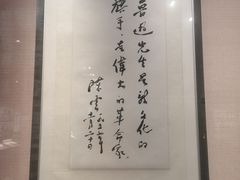 魯迅先生是新文化的
旗手，是偉大的革命家。
陈云